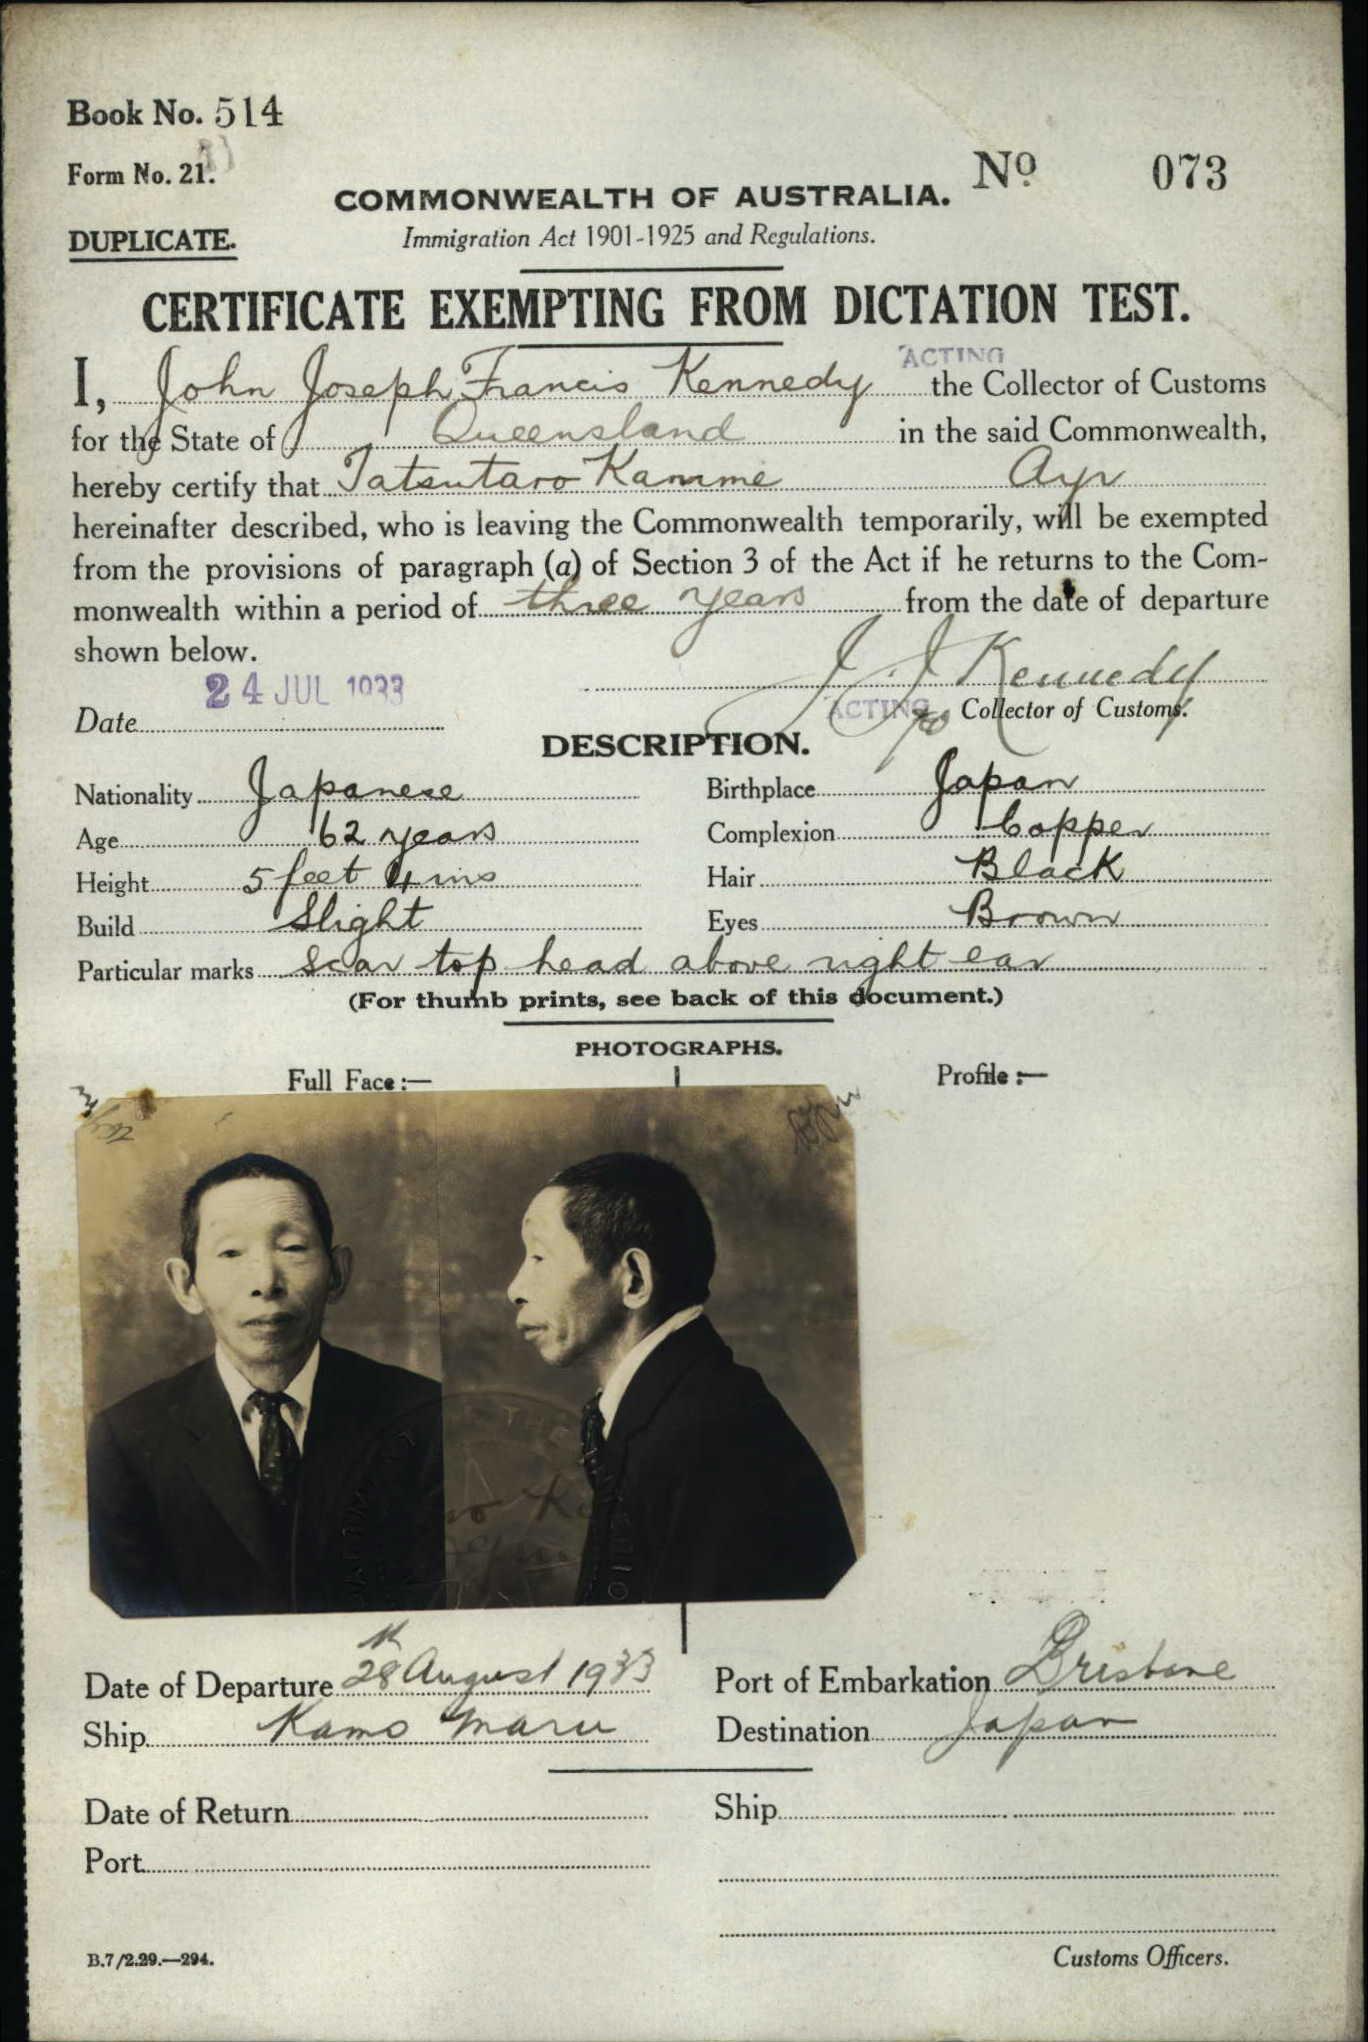 Book No. 514
Form No. 21.
No 073
COMMONWEALTH OF AUSTRALIA.
DUPLICATE.
Immigration Act 1901-1925 and Regulations.
CERTIFICATE EXEMPTING FROM DICTATION TEST.
ACTING
I, John Joseph Francis Kennedy the Collector of Customs
for the State of Queensland in the said Commonwealth,
hereby certify that Tatsutaro Kamme Ayr
hereinafter described, who is leaving the Commonwealth temporarily, will be exempted
from the provisions of paragraph (a) of Section 3 of the Act if he returns to the Com-
monwealth within a period of three years from the date of departure
shown below.
J J Kennedy
Date 24 JUL 1933
ACTING Collector of Customs.
DESCRIPTION.
Nationality Japanese Birthplace Japan
Age 62 years Complexion Copper
Height 5 feet 4 ins Hair Black
Build Slight Eyes Brown
Particular marks scar top head above right ear
(For thumb prints, see back of this document.)
PHOTOGRAPHS.
Full Face :— Profile :—
Date of Departure 28th August 1933 Port of Embarkation Brisbane
Ship Kamo Maru Destination Japan
Date of Return Ship
Port
B.7/2.29.—294.
Customs Officers.